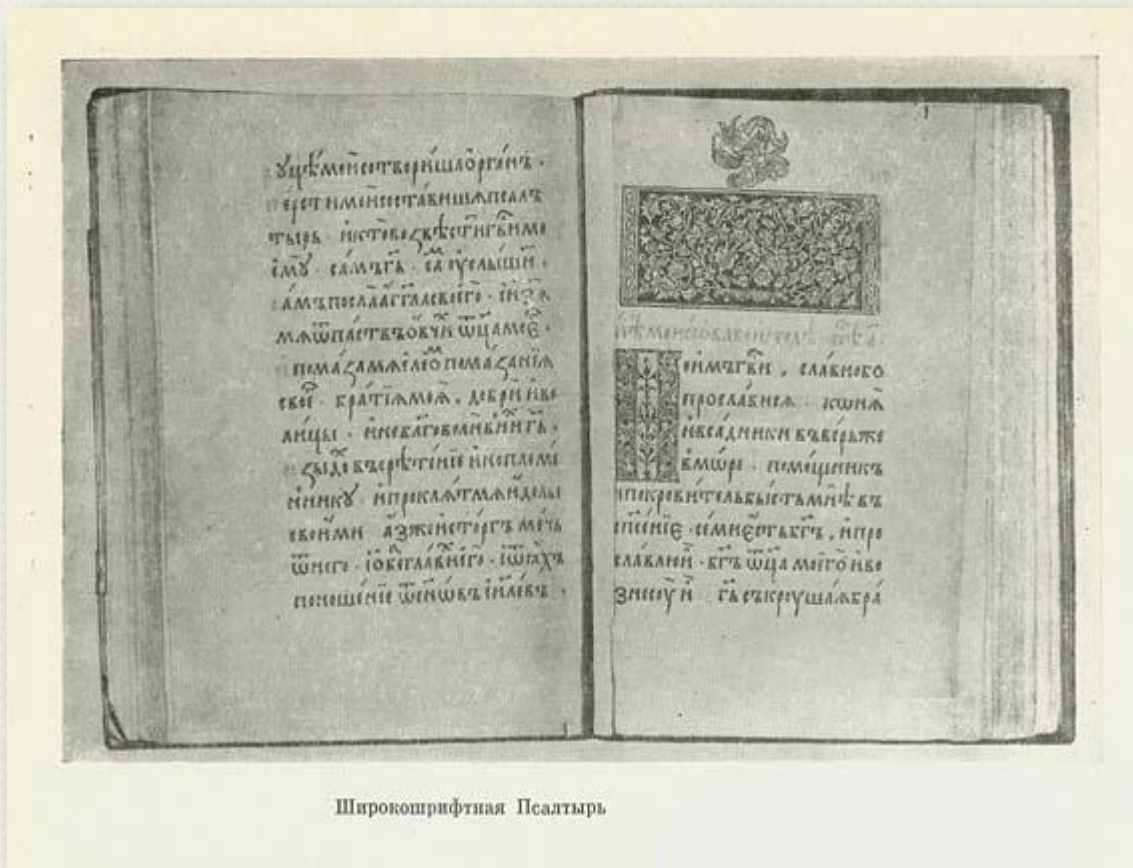 ꙋцѣ мои҆ сотвори́ша ѻ҆рга́нъ .
е҆рсти мои҆ соста́виша псалъ
тырь . и҆ кто возвѣсти́ гв҃и мо
е҆мꙋ̀ . са́мъ гь҃ . саⷨ ᲂу҆слы́ши .
а́мъ посла̀ а҆гг҃ла своего̀ . и҆ взѧ
мѧ ѿ паствъ ѻ҆вчиⷯ ѿц҃а моеⷢ҇ .
помаза мѧ е҆леоⷨ помазанїѧ
своеⷢ҇ . бра́тїѧ моѧ̀ , добри̑ и҆ ве
ли́цы . и҆ не бл҃говоли в ниⷯ гь҃ .
зыдоⷯ въ срѣ́тенїе и҆ноплеме
нникꙋ . и҆ проклѧ́т мѧ и҆долы
свои́ми а҆́з же и҆сто́ргъ ме́чь
ѿ него . ѡ҆безглавиⷯ е҆го̀ . и҆ ѿѧⷯхъ
поношенїе ѿ сн҃ѡвъ і҆и҃левъ .
1
Поимъ гв҃и , сла́вно бо
просла́висѧ . ко́нѧ
и҆ всадники въверьже
в мо́ре . помо́щникъ
и҆ покрови́тель бысть мнѣ въ
сп҃се́нїе . се́и мнѣ е҆сть бг҃ъ , и҆ про
сла́влю и҆̀ . бг҃ъ ѿц҃а моего̀ и҆ во
знесꙋ̀ и҆̀ гь҃ съкрꙋша́ѧ бра́
Широкошрифтная Псалтырь